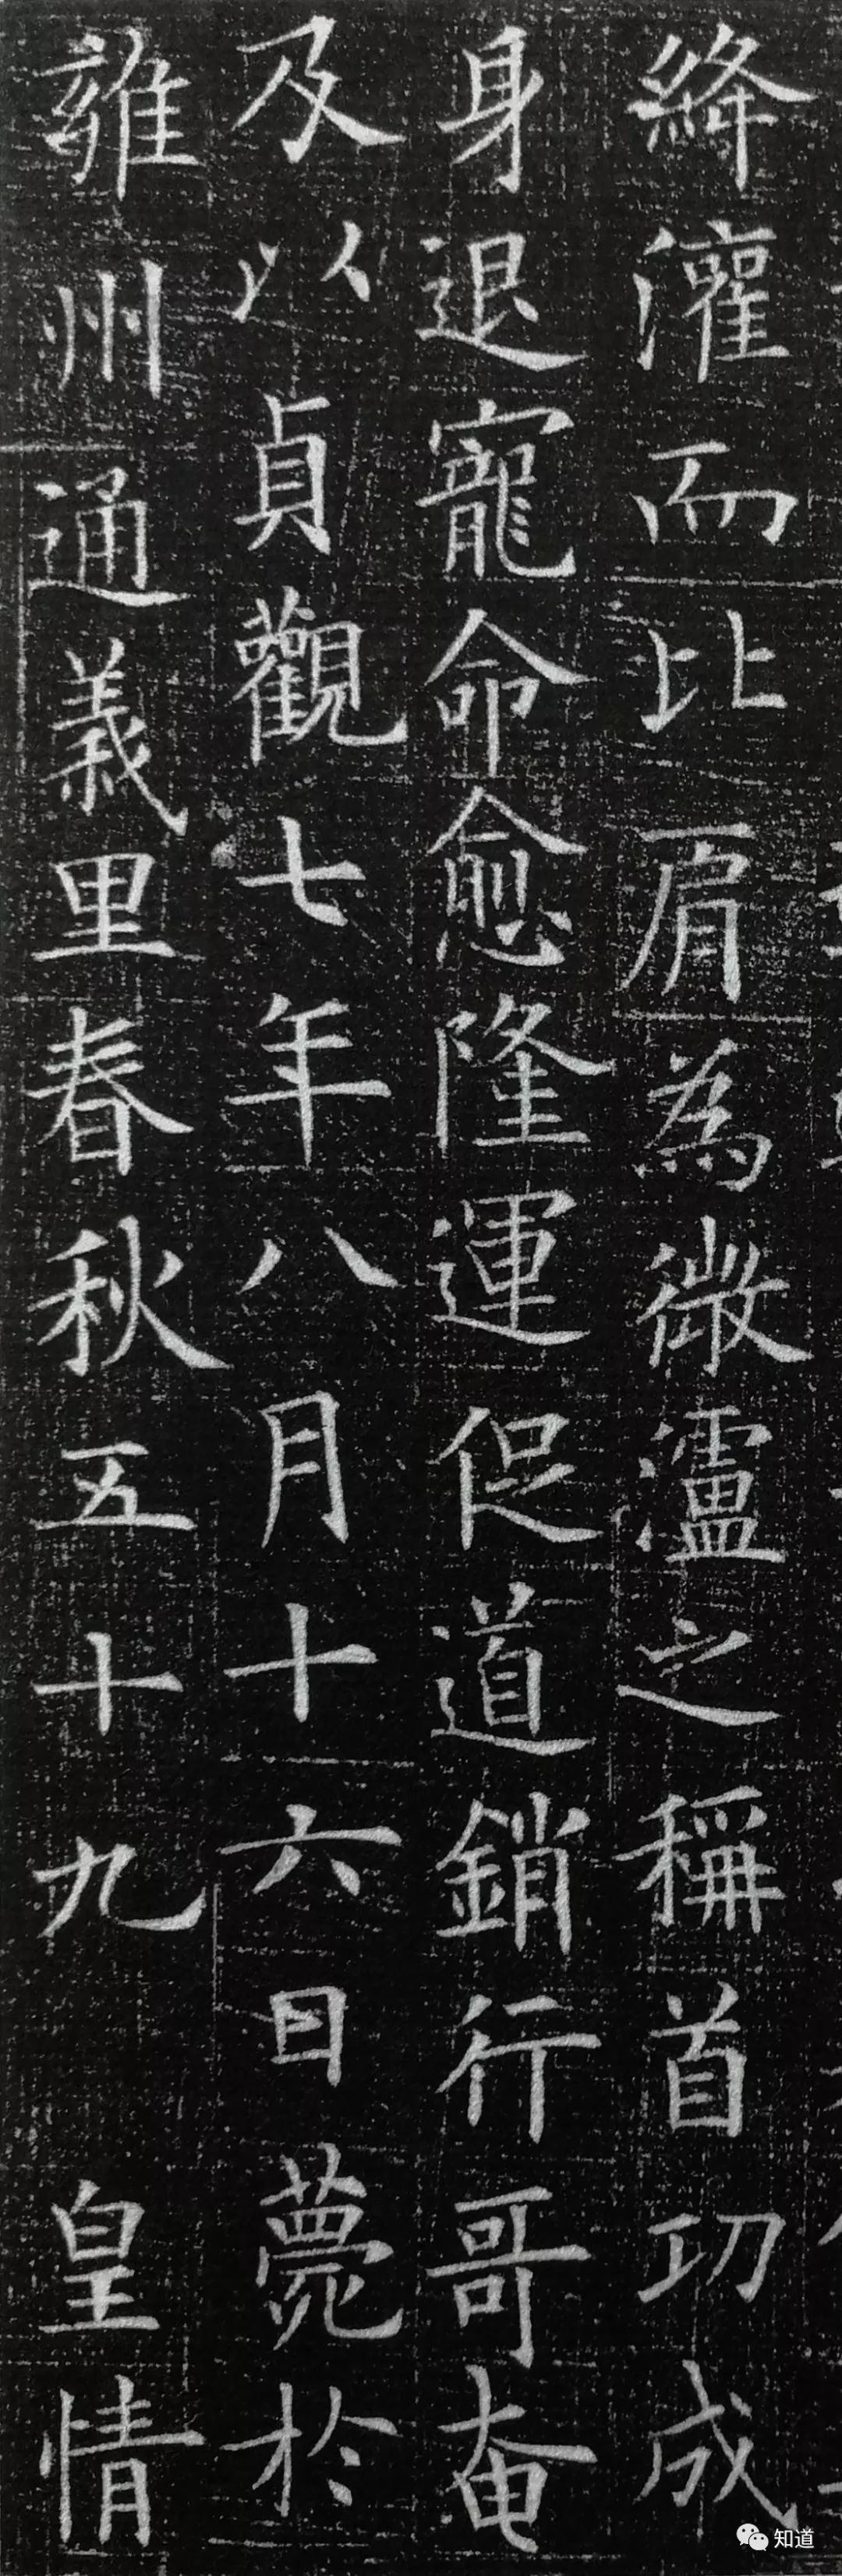 絳灌而比肩為微瀘之稱首功成
身退寵命愈隆運促道銷行哥奄
及以貞觀七年八月十六日薨於
雍州通義里春秋五十九 皇情
知道